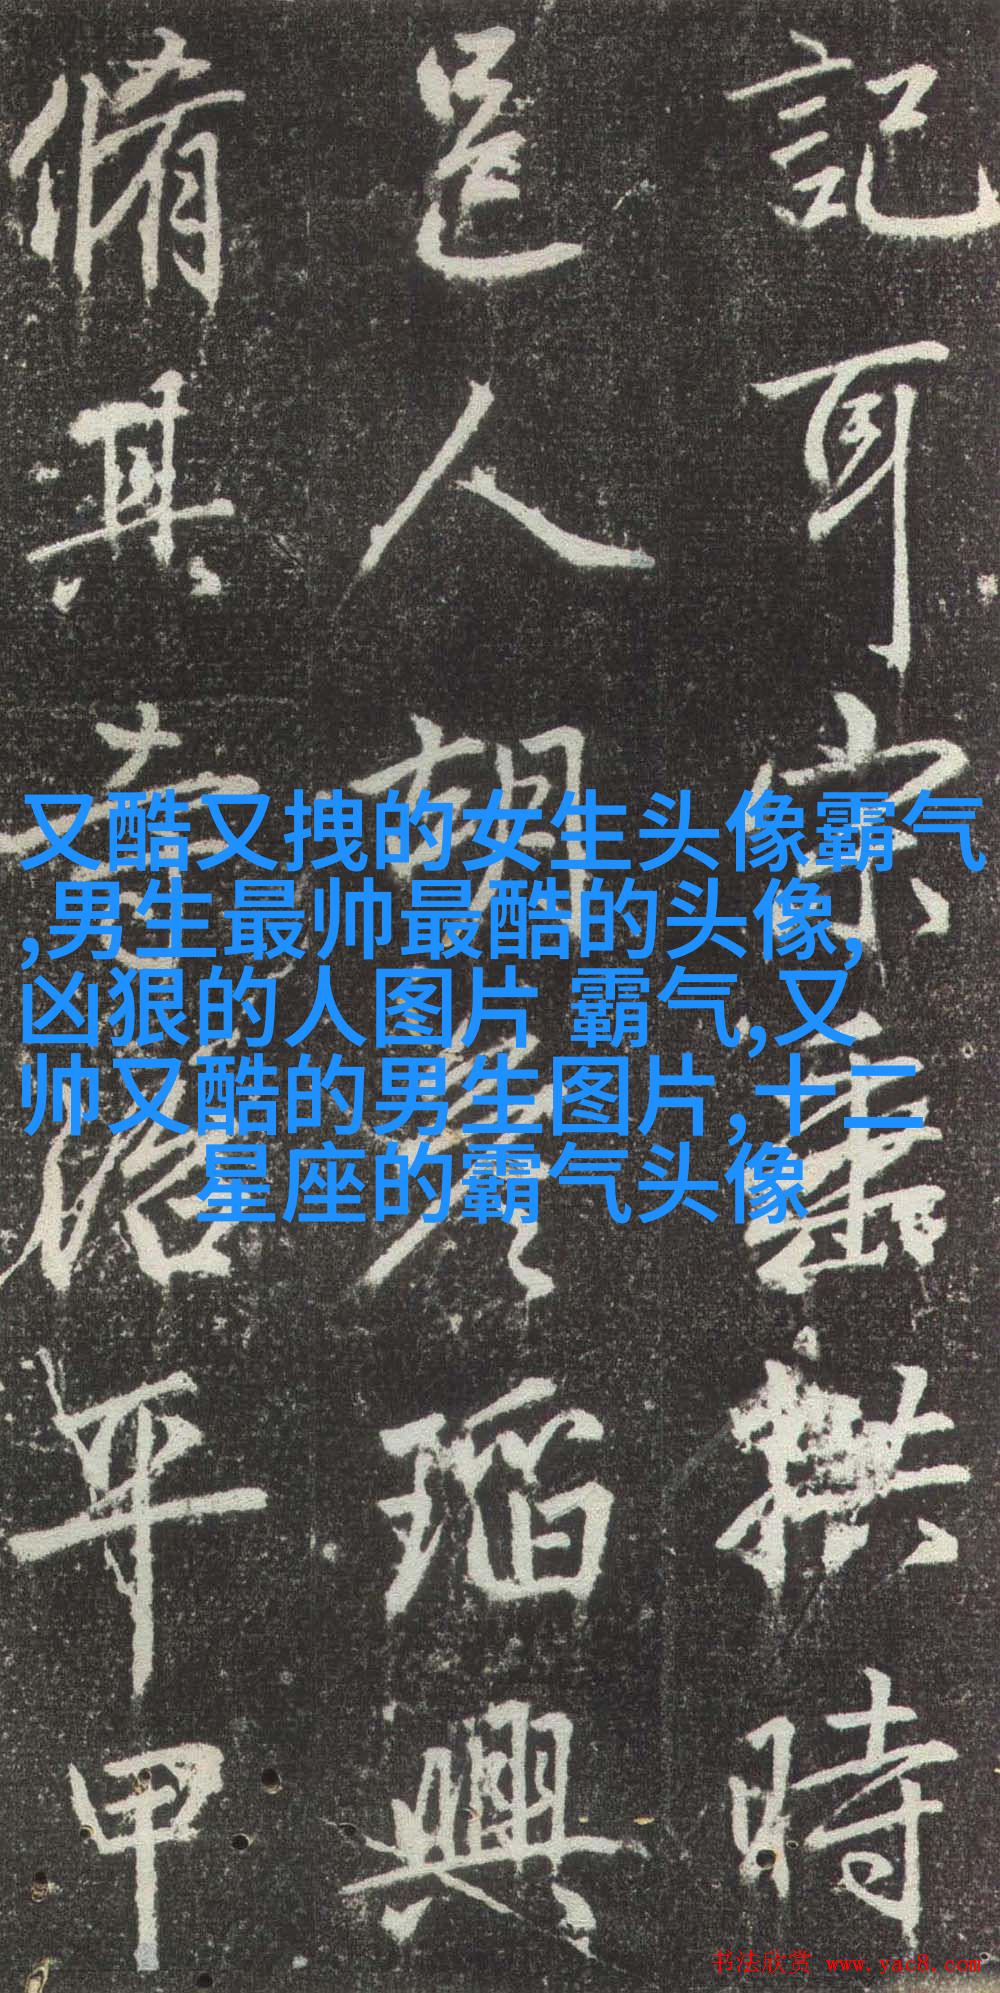 記耳宗拱時
邑人胡彦瑫興
脩其治平甲
又酷又拽的女生头像霸气
,男生最帅最酷的头像,
凶狠的人图片 霸气,又
帅又酷的男生图片,十二
星座的霸气头像
书法欣赏 www.yac8.com